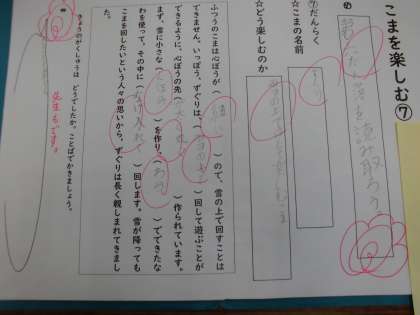 こまを楽しむ⑦
め ⑦だん落を読み取ろう。
⑦だんらく
☆こまの名前
ずぐり
☆どう楽しむのか
ふつうのこまは心ぼうが（細い）ので、雪の上で回すことは
できません。いっぽう、ずぐりは（雪の上）で回して遊ぶことが
できるように、心ぼうの先（が太く）作られています。
まず、雪に小さな（くぼみ）を作り、（わら）でできたな
わを使って、その中に（なげ入れて）回します。雪が降っても
こまを回したいという人々の思いから、ずぐりは長く親しまれてきまし
た。
きょうのがくしゅうは どうでしたか。ことばでかきましょう。
先生もです。